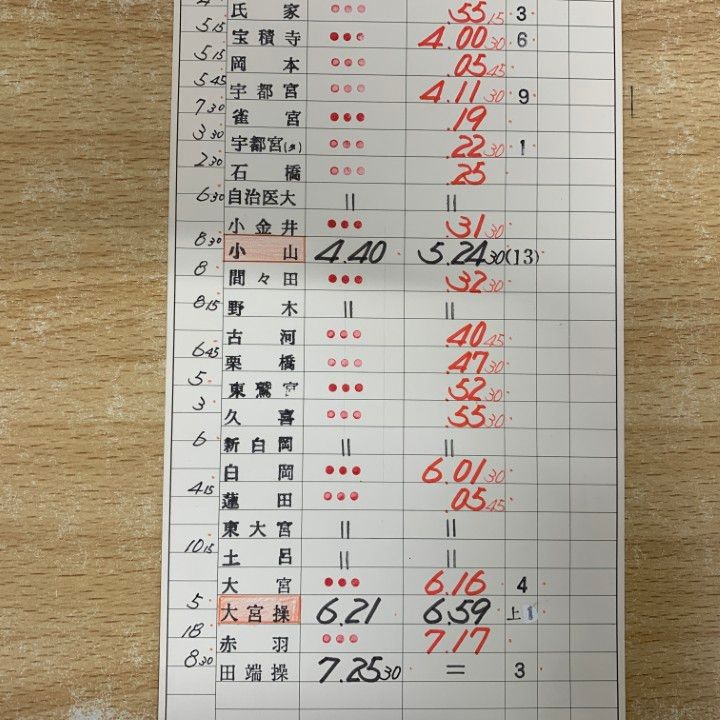 氏家 ●●● .55 15 3
5 15
宝積寺 ●●● 4.00 30 6
5 15
岡本 ●●● .05 45
5 45
宇都宮 ●●● 4.11 30 9
7 30
雀宮 ●●● .19
3 30
宇都宮(タ) ●●● .22 30 1
2 30
石橋 ●●● .25
6 30
自治医大 || ||
小金井 ●●● .31 30
8 30
小山 4.40 5.24 30 (13)
8
間々田 ●●● .32 30
8 15
野木 || ||
古河 ●●● .40 45
6 45
栗橋 ●●● .47 30
5
東鷲宮 ●●● .52 30
3
久喜 ●●● .55 30
6
新白岡 || ||
白岡 ●●● 6.01 30
4 15
蓮田 ●●● .05 45
東大宮 || ||
10 15
土呂 || ||
大宮 ●●● 6.16 4
5
大宮操 6.21 6.59 上1
18
赤羽 ●●● 7.17
8 30
田端操 7.25 30 = 3